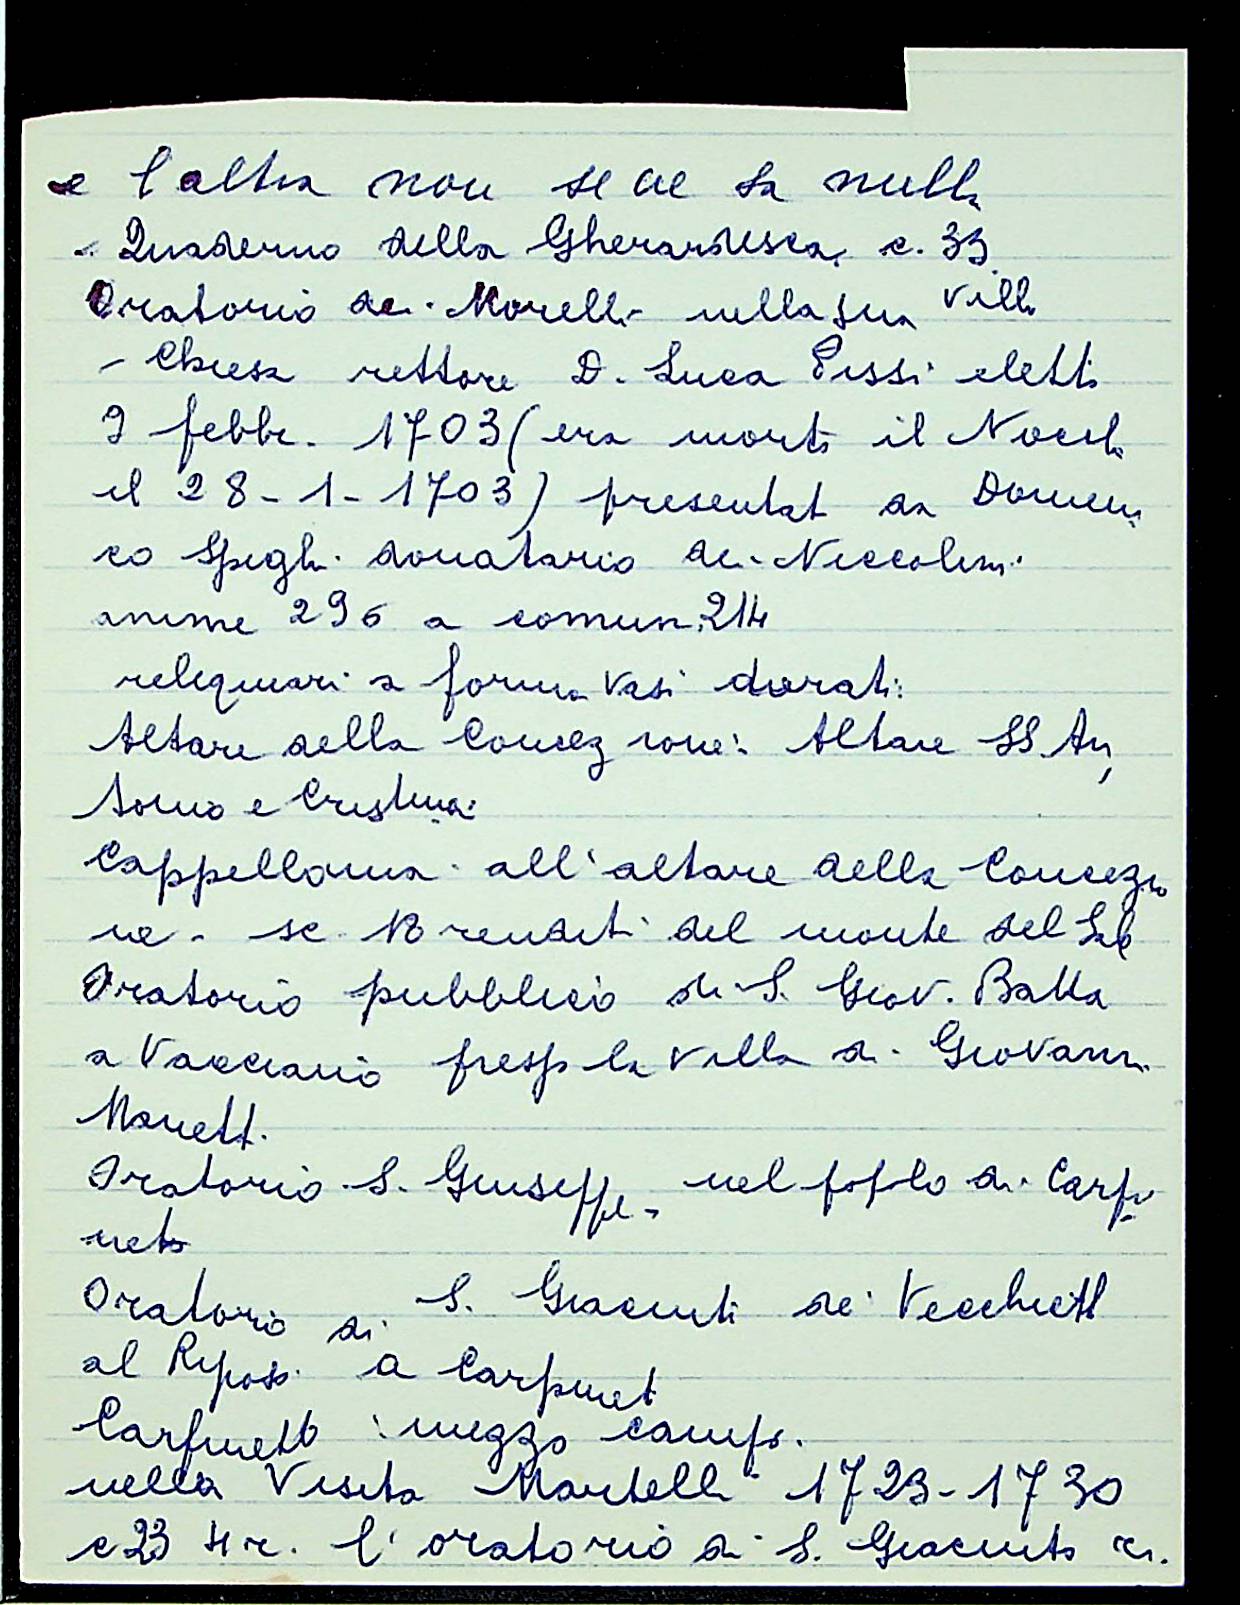 e l'altra non se ne sa nulla
- Quaderno della Gherardesca, c. 33
Oratorio dei Morelli nella sua villa
- Chiesa rettore D. Luca eletto
9 febbr. 1703 (era morto il
il 28-1-1703) presentat da Domeni
co Spigli donatario dei Niccolini
anime 296 a comun. 214
reliquiari a forma vasi dorati:
Altare della Concezione: Altare SS An,
tonio e Cristina:
Cappellania all'altare della Concezio
ne - sc. renditi del monte del Sale
Oratorio pubblico di S. Giov. Batta
a Vacciano presso la villa di Giovanni
Manetti.
Oratorio S. Giuseppe - nel popolo di Carpi
neto
Oratorio di S. Giacinto de' Vecchietti
al Riposo. a Carpineto
Carpineto mezzo campo.
nella Visita Martelli 1723-1730
c 23 l'oratorio di S. Giacinto